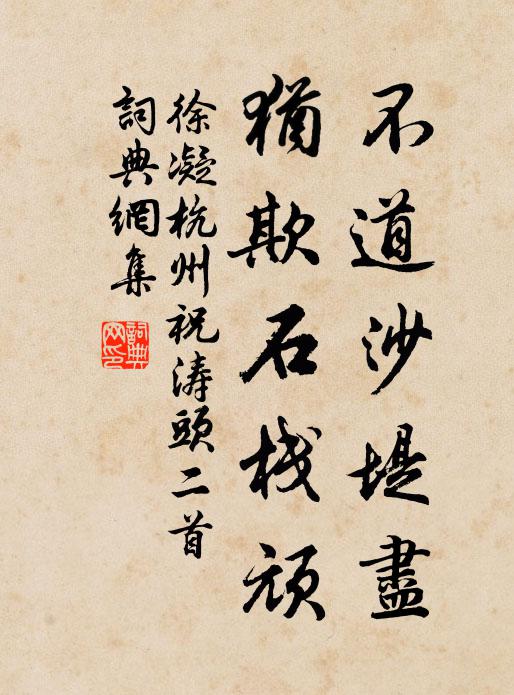 不道沙堤盡
猶欺石栈頑
徐凝杭州祝涛頭二首
詞典網集
詞典网印